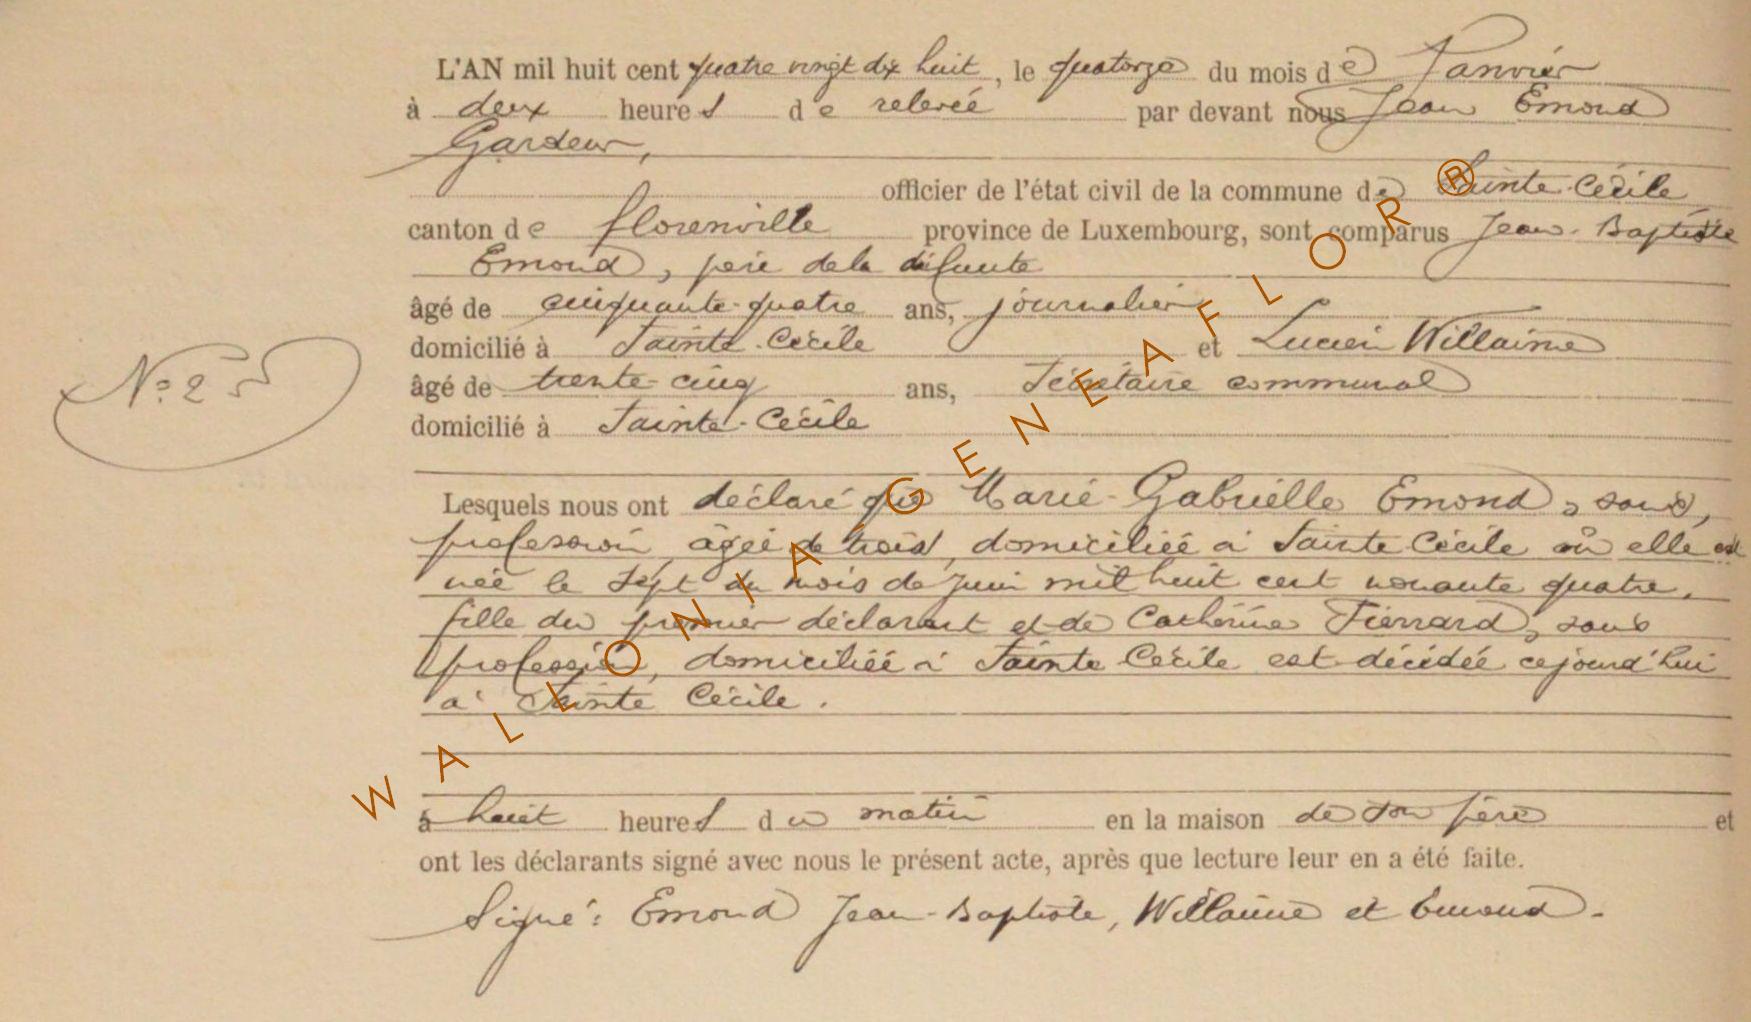 L'AN mil huit cent quatre vingt dix huit, le quatorze du mois de Janvier
à deux heures de relevée par devant nous Jean Emond
Gardeur,
officier de l'état civil de la commune de Sainte-Cécile
canton de florenville province de Luxembourg, sont comparus Jean-Baptiste
Emond, père de la défunte
âgé de cinquante-quatre ans, journalier
domicilié à Sainte-Cécile et Lucien Willaime
âgé de trente-cinq ans, Secrétaire communal
domicilié à Sainte-Cécile
N° 2
Lesquels nous ont déclaré que Marie-Gabrielle Emond, sans,
profession, âgée de trois, domiciliée à Sainte Cécile où elle est
née le sept du mois de juin mil huit cent nonante quatre,
fille du premier déclarant et de Catherine Fierrard, sans
profession, domiciliée à Sainte Cécile est décédée cejourd'hui
à Sainte Cécile.
à huit heures du matin en la maison de son père et
ont les déclarants signé avec nous le présent acte, après que lecture leur en a été faite.
Signé: Emond Jean-Baptiste, Willaime et Emond.
WALLONIA GENEAFLOR ®